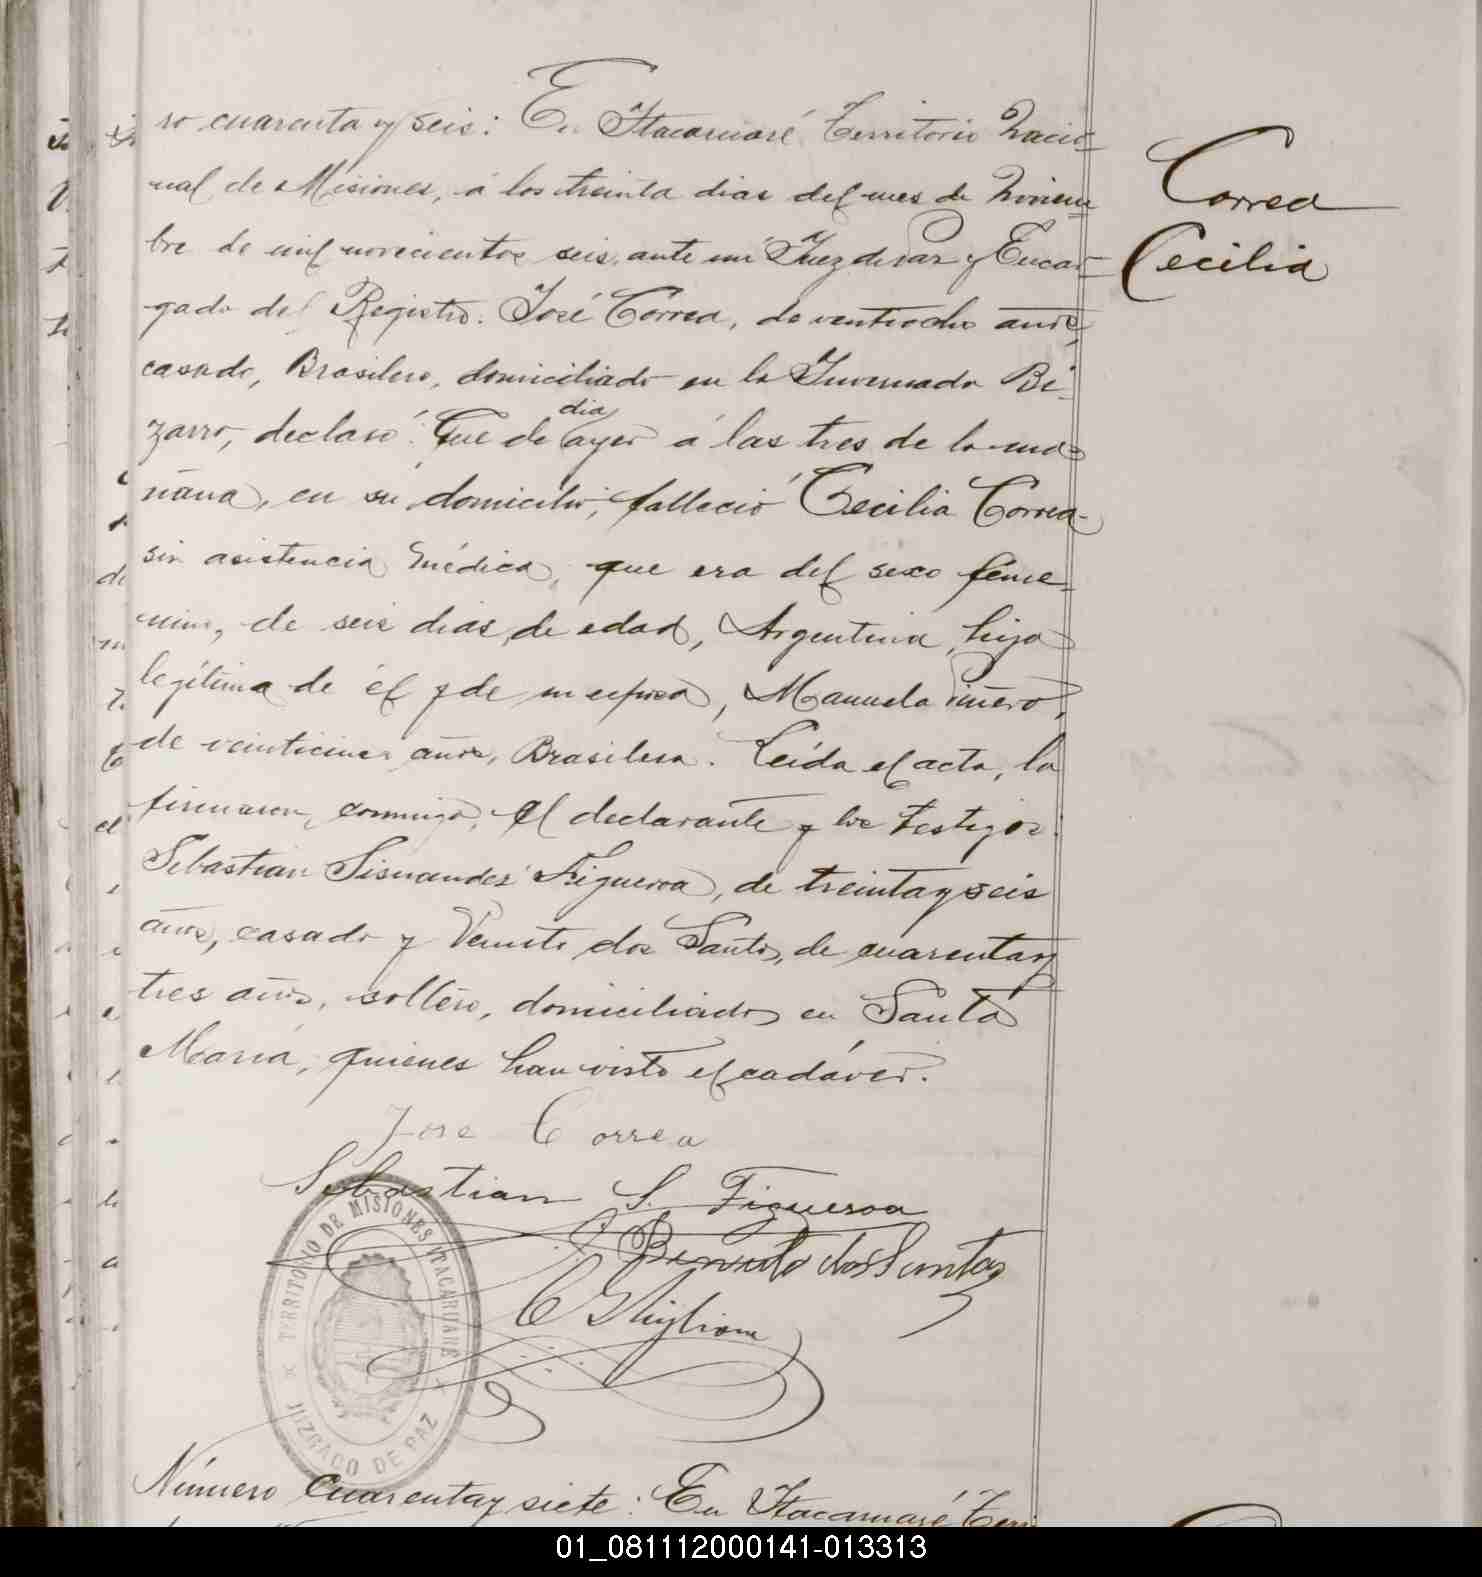 ro cuarenta y seis: En Itacaruaré, Territorio Nacio-
nal de Misiones, á los treinta dias del mes de Noviem-
bre de mil novecientos seis, ante mí Juez de Paz y Encar-
gado del Registro. José Correa, de ventiocho años,
casado, Brasilero, domiciliado en la Invernada Bi-
zarro, declaró: Que de dia ayer á las tres de la ma-
ñana, en su domicilio, falleció Cecilia Correa-
sin asistencia médica, que era del sexo feme-
nino, de seis dias, de edad, Argentina, hija
legítima de él y de su esposa, Manuela Piñero,
de veinticinco años, Brasilera. Leida el acta, la
firmaron, conmigo, el declarante y los testigos.
Sebastian Sisnandez Figueroa, de treinta y seis
años, casado y Benito dos Santos, de cuarenta y
tres años, soltero, domiciliados en Santa
María, quienes han visto el cadáver.
Correa
Cecilia
Jose Correa
Sebastian S. Figueroa
Benito dos Santos
TERRITORIO DE MISIONES ITACARUARE
JUZGADO DE PAZ
Número cuarenta y siete: En Itacaruaré, Terri
01_081112000141-013313